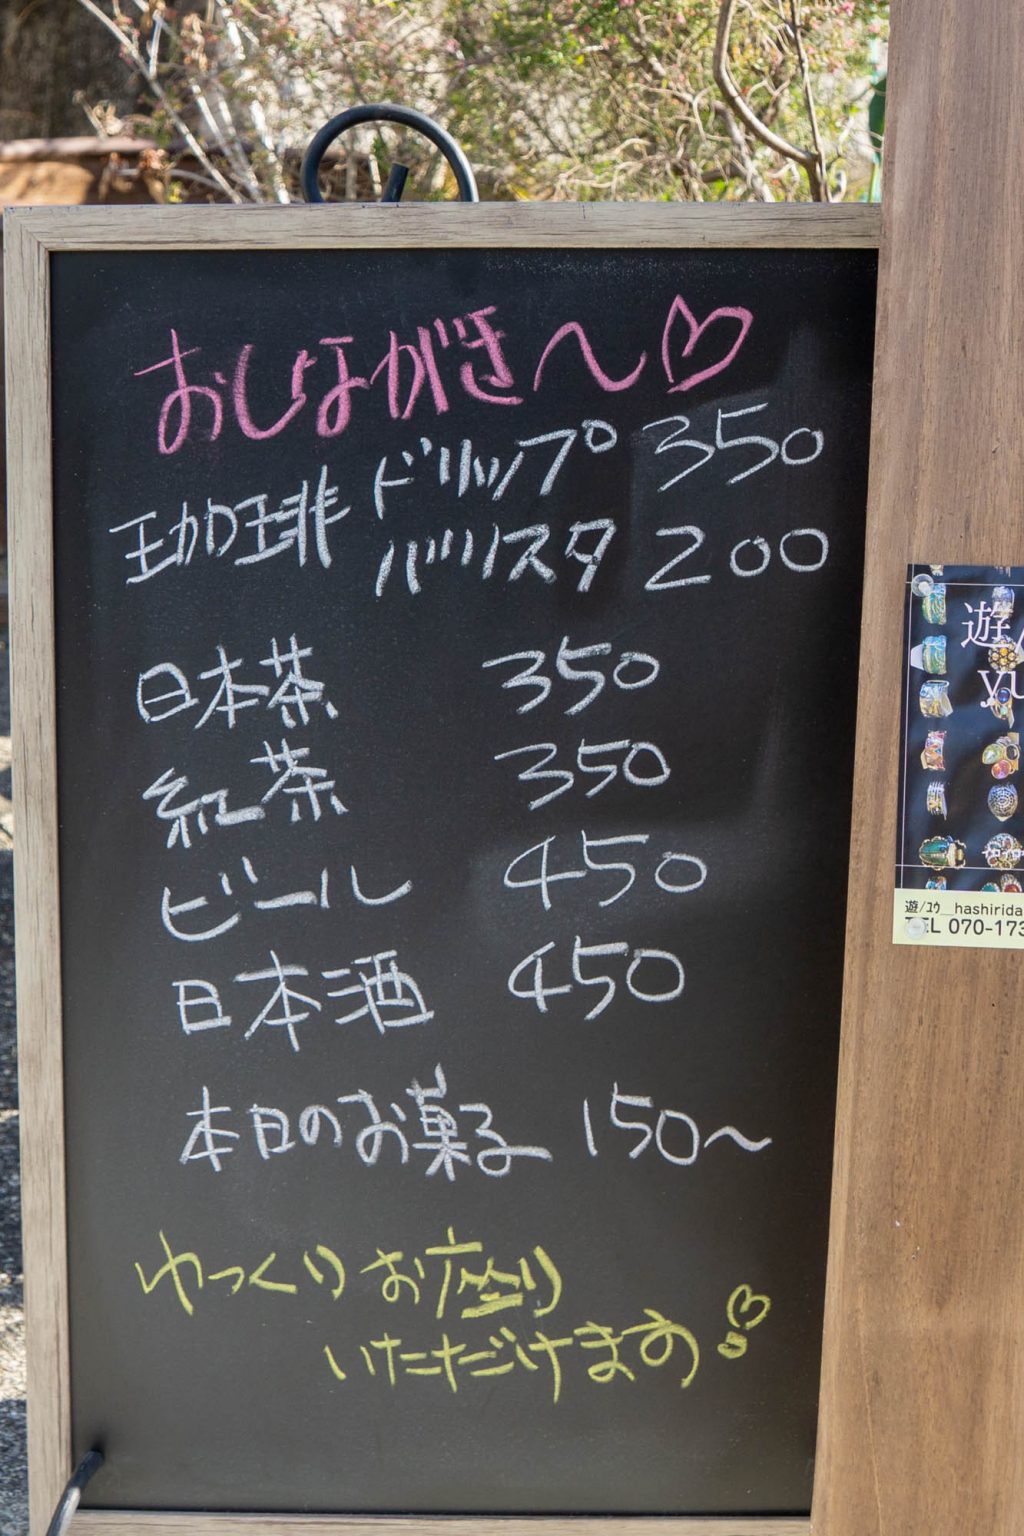 おしながき〜♡
珈琲 ドリップ 350
バリスタ 200
日本茶 350
紅茶 350
ビール 450
日本酒 450
本日のお菓子 150〜
ゆっくりお座り
いただけます
遊/
yu
遊/ユウ_hashirida
TEL 070-173